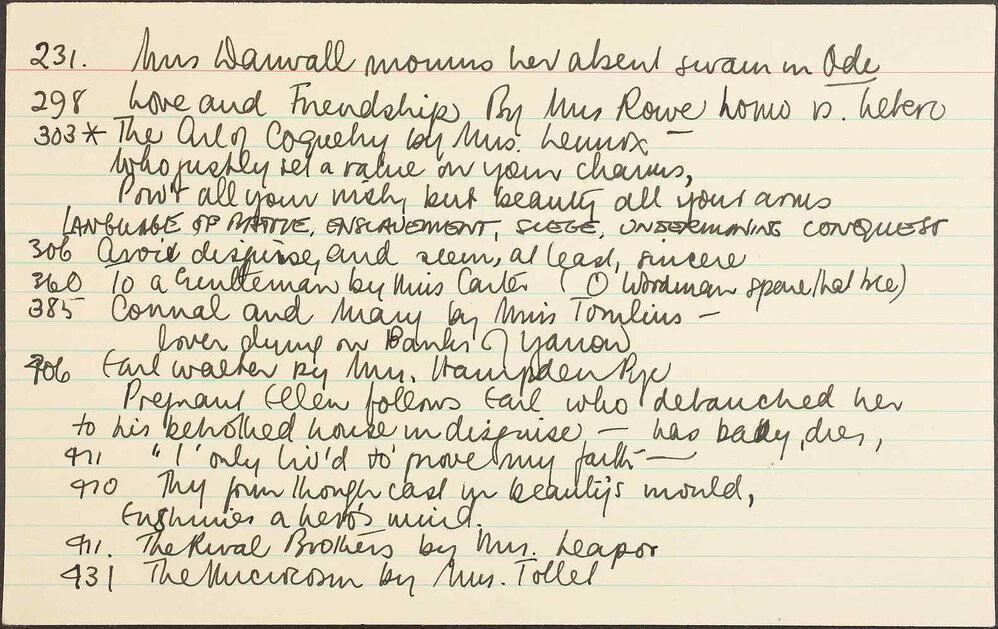 231. Mrs Darwall mourns her absent swain in Ode
298 Love and Friendship By Mrs Rowe homo vs. hetero
303* The Art of Coquetry by Mrs. Lennox –
Who justly set a value on your charms,
Pow'r all your wish, but beauty all your arms
LANGUAGE OF BATTLE, ENSLAVEMENT, SIEGE, UNDERMINING CONQUEST
306 Avoid disguise, and seem, at least, sincere
360 To a Gentleman by Miss Carter (O Woodman spare that tree)
385 Connal and Mary by Miss Tomlins –
Lover dying on Banks of Yarrow
406 Earl Walter by Mrs. Hampden Pye
Pregnant Ellen follows Earl who debauched her
to his betrothed house in disguise – has baby, dies,
411 "I only liv'd to prove my faith –
410 Thy form though cast in beauty's mould,
Enshrines a hero's mind.
411. The Rival Brothers by Mrs. Leapor
431 The Microcosm by Mrs. Tollet